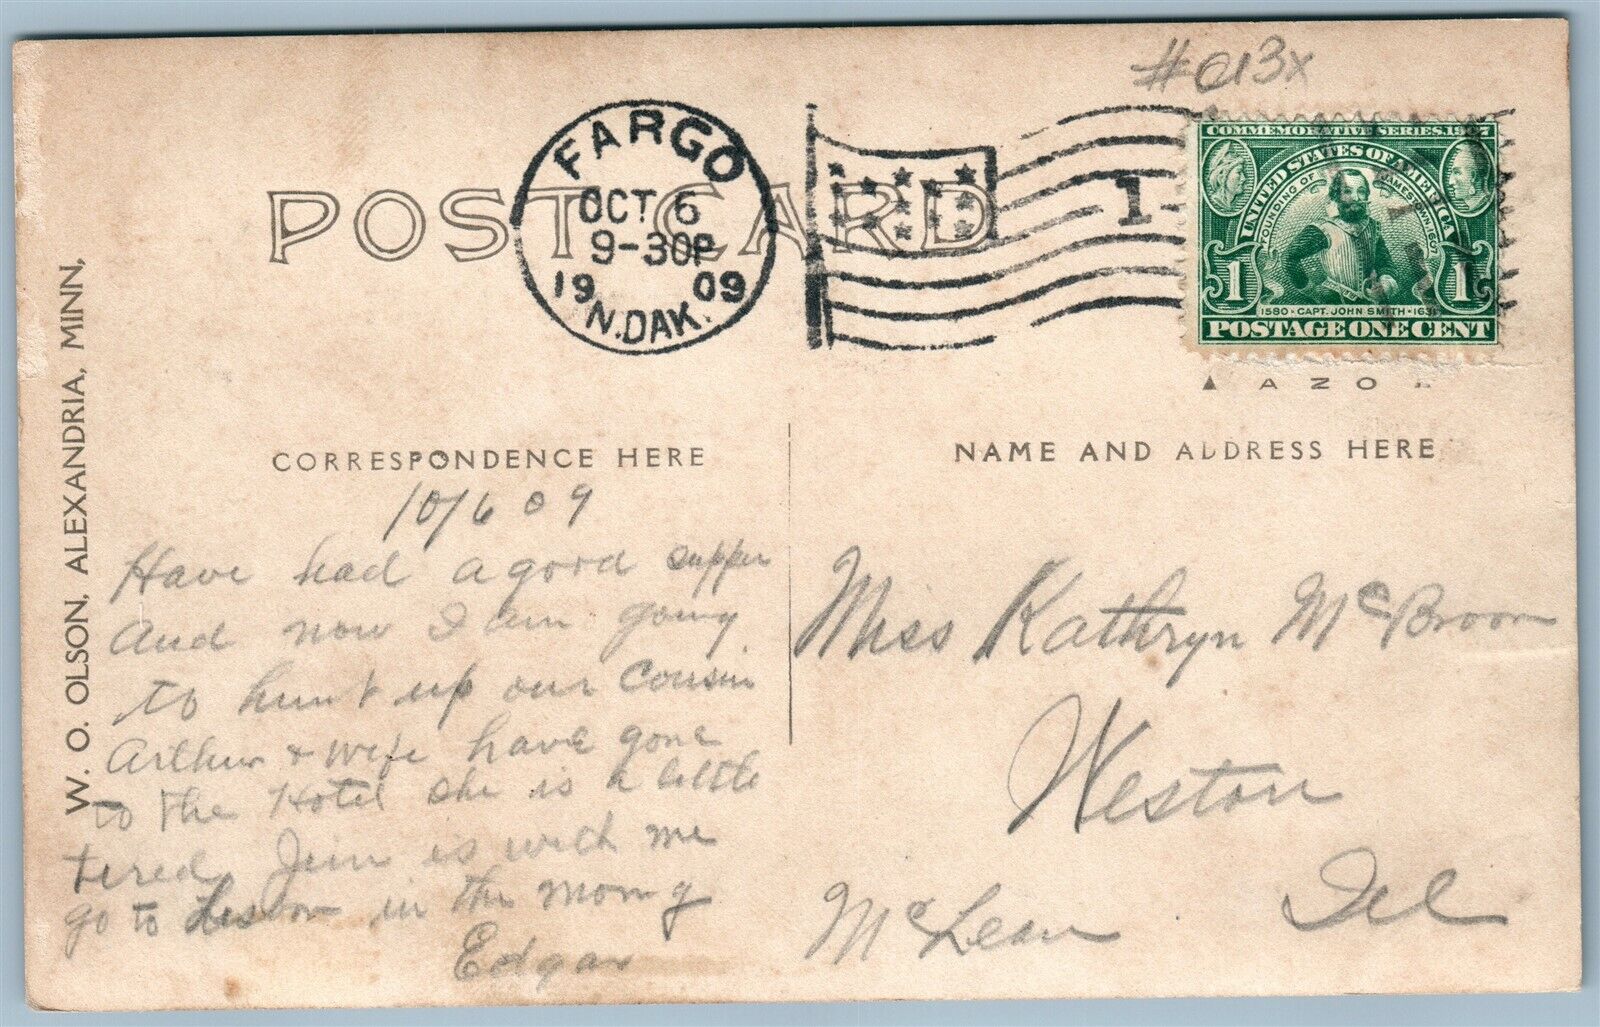 #613x
POST CARD
FARGO
OCT 6
9-30P
1909
N.DAK.
1
COMMEMORATIVE SERIES, 1907
UNITED STATES OF AMERICA
FOUNDING OF JAMESTOWN 1607
1 1
1580 · CAPT. JOHN SMITH · 1631
POSTAGE ONE CENT
AZO
W. O. OLSON, ALEXANDRIA, MINN.
CORRESPONDENCE HERE
10/6 09
Have had a good supper
and now I am going
to hunt up our Cousin
Arthur & Wife have gone
to the Hotel she is a little
tired Jim is with me
go to Lisbon in the morng
Edgar
NAME AND ADDRESS HERE
Miss Kathryn McBroom
Weston
McLean Ill